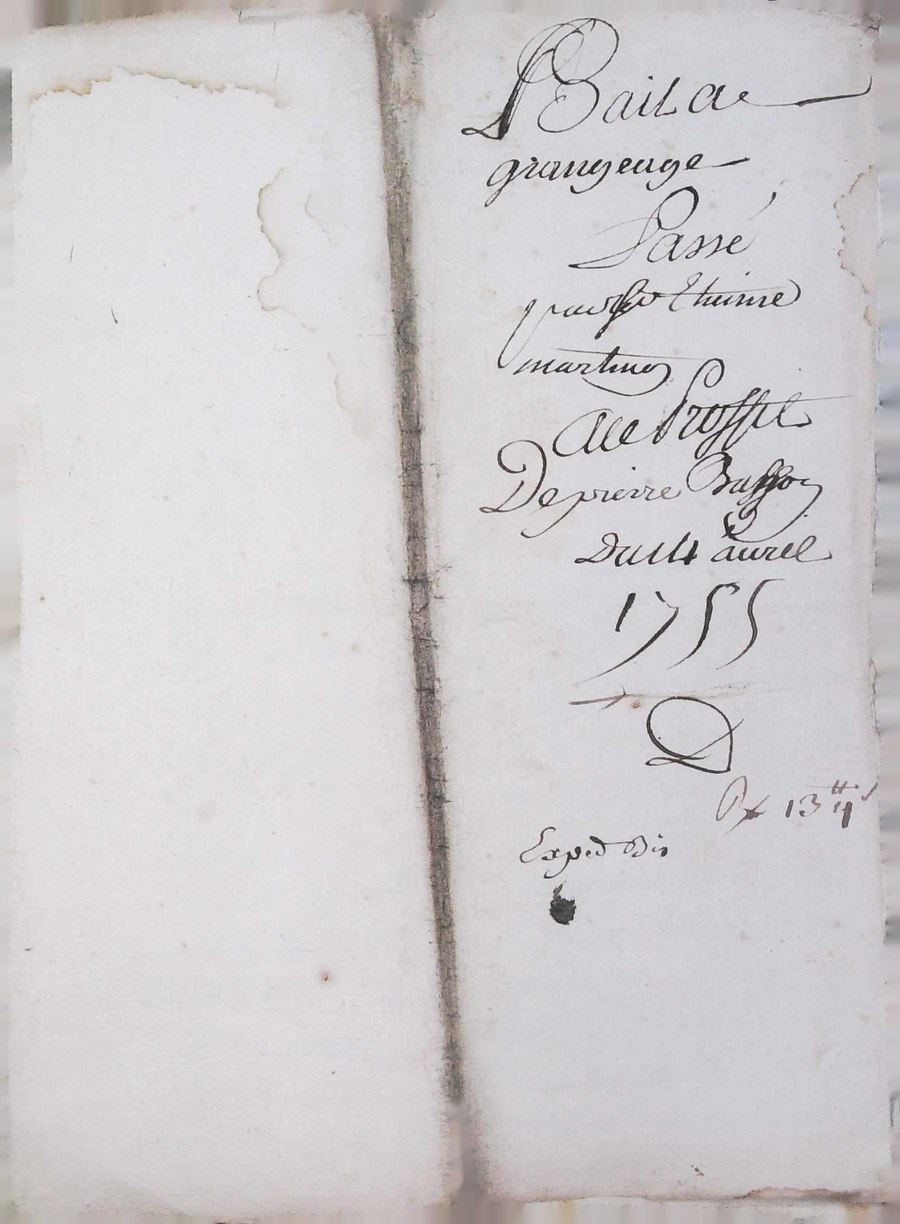 Bail a
grangeage
Passé
par Sr Etienne
martin
Au Proffit
De pierre Buffon
Du 14 avrel
1755
D
13 ₶ 4 s
Exped Bis